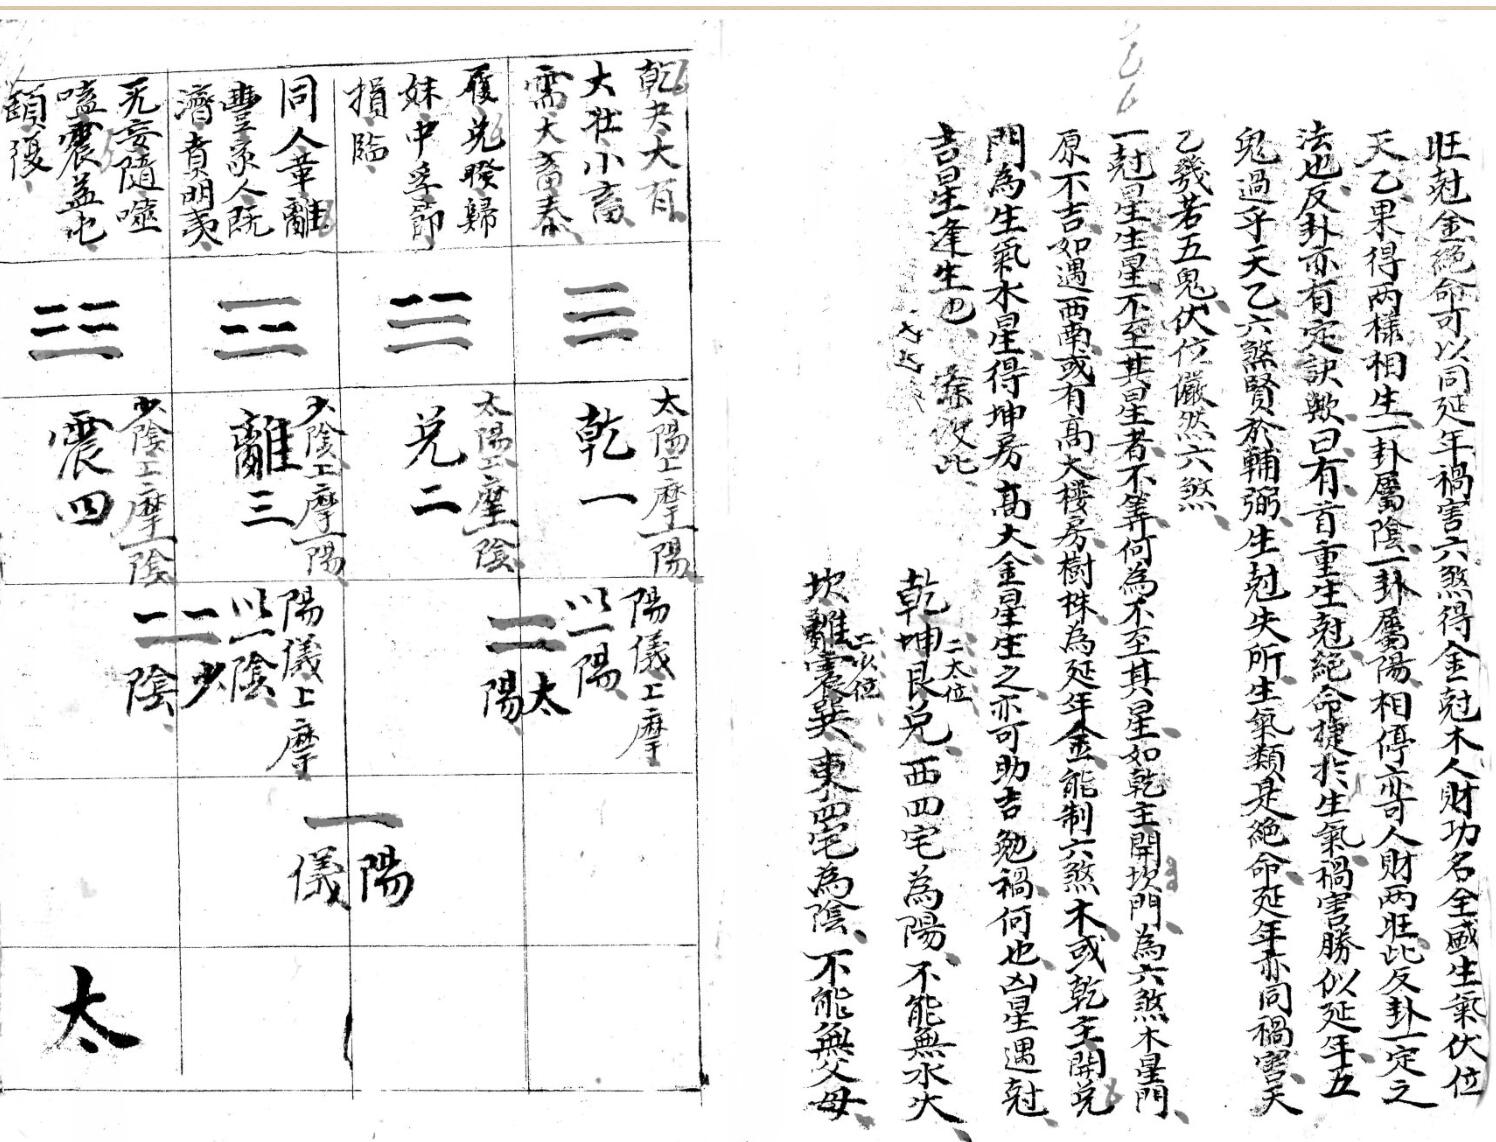 旺尅金絕命可以同延年禍害六煞得金尅木人財功名全盛生氣伏位
天乙果得两樣相生一卦屬陰一卦屬陽相停亦可人財两旺此反卦一定之
法也反卦亦有定訣歟曰有首重生尅絕命捷於生氣禍害勝似延年五
鬼過乎天乙六煞賢於輔弼生尅失所生氣類是絕命延年亦同禍害天
乙幾若五鬼伏位儼然六煞
一尅星生星不至其星者不筭何為不至其星如乾主開坎門為六煞水星門
原不吉如遇西南或有高大楼房樹株為延年金能制六煞木或乾主開兑
門為生氣木星得坤房高大金星生之亦可助吉勉禍何也凶星遇尅
吉星逢生也
乾坤艮兑西四宅為陽不能無水火
二太位
坎離震巽東四宅為陰不能無父母
二少位
乾夬大有
大壯小畜
需大畜泰
履兑睽歸
妹中孚節
損臨
同人革離
豐家人既
濟賁明夷
无妄隨噬
嗑震益屯
頤復
太陽上摩一陽
乾一
太陽上摩一陰
兑二
少陰上摩一陽
離三
少陰上摩一陰
震四
陽儀上摩
以一陽
太
陽
陽儀上摩
以一陰
少
陰
陽
儀
太